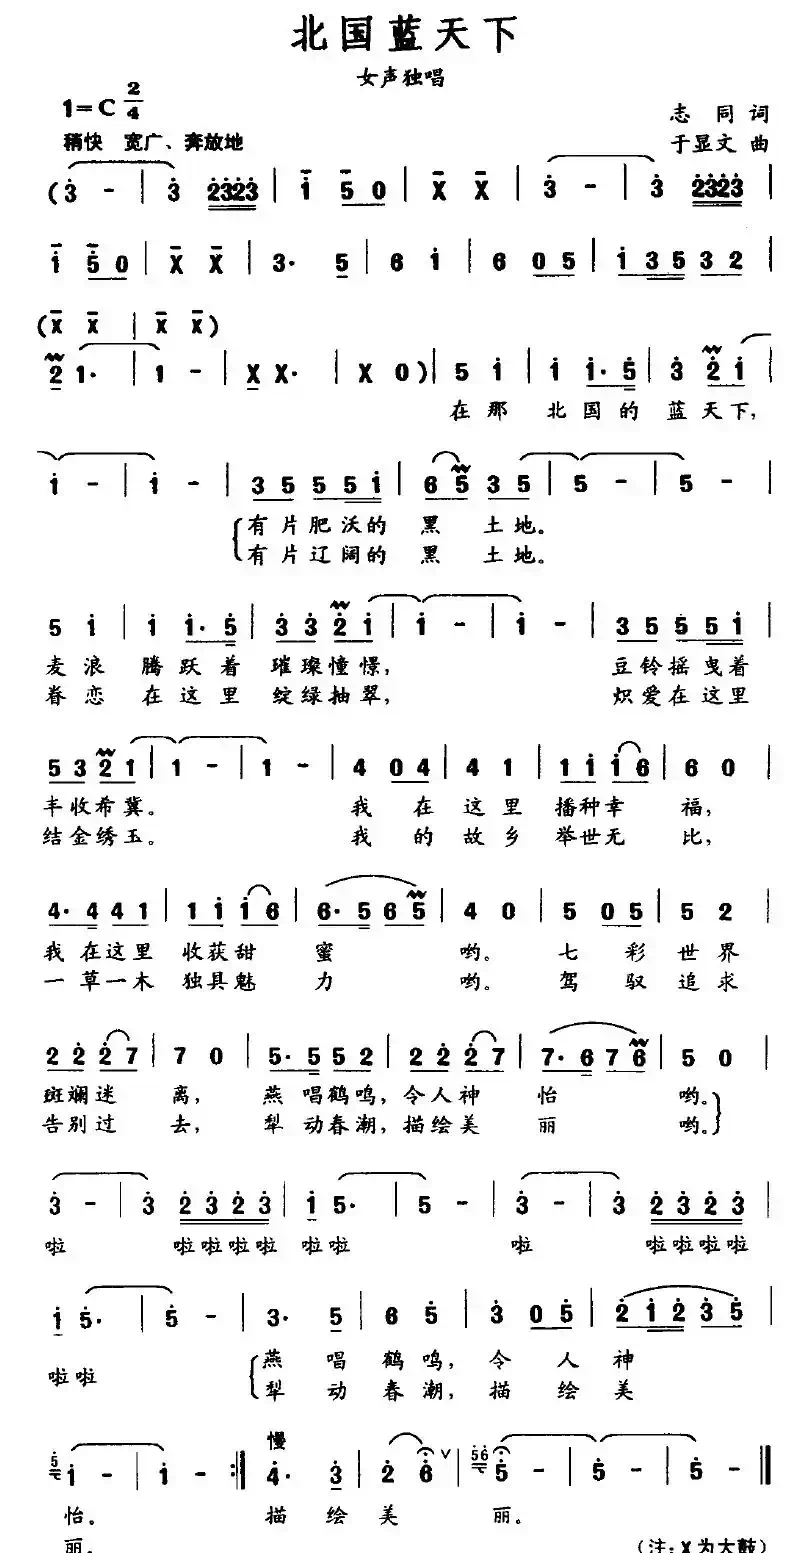 北国蓝天下
女声独唱
1=C 2/4
志同词
稍快 宽广、奔放地
于显文 曲
(3 - | 3 2323 | 1 50 | X X | 3 - | 3 2323 |
1 50 | X X | 3· 5 | 6 1 | 6 05 | 1 3532 |
(X X | X X)
2 1· | 1 - | X X· | X 0) | 5 1 | 1 1·5 | 3 2 1 |
在那 北国的 蓝天下,
1 - | 1 - | 35 551 | 65 35 | 5 - | 5 - |
有片肥沃的 黑 土地。
有片辽阔的 黑 土地。
5 1 | 1 1·5 | 33 21 | 1 - | 1 - | 35 551 |
麦浪 腾跃着 璀璨憧憬, 豆铃摇曳着
眷恋 在这里 绽绿抽翠, 炽爱在这里
53 21 | 1 - | 1 - | 4 04 | 4 1 | 11 16 | 6 0 |
丰收希冀。 我 在 这里 播种幸 福,
结金绣玉。 我 的 故乡 举世无 比,
4·4 41 | 11 16 | 6·5 65 | 4 0 | 5 05 | 5 2 |
我在这里 收获甜 蜜 哟。 七 彩 世界
一草一木 独具魅 力 哟。 驾 驭 追求
22 27 | 7 0 | 5·5 52 | 22 27 | 7·6 76 | 5 0 |
斑斓迷 离, 燕唱鹤鸣,令人神 怡 哟。
告别过 去, 犁动春潮,描绘美 丽 哟。
3 - | 3 2323 | 1 5· | 5 - | 3 - | 3 2323 |
啦 啦啦啦啦 啦啦 啦 啦啦啦啦
1 5· | 5 - | 3· 5 | 6 5 | 3 05 | 212 35 |
啦啦 燕 唱 鹤鸣,令 人 神
犁 动 春潮,描 绘 美
慢
5 1 - | 1 - :| 4· 3 | 2 6 ∨ | 56 5 - | 5 - | 5 - ||
怡。 描 绘美 丽。
丽。 (注:X为大鼓)